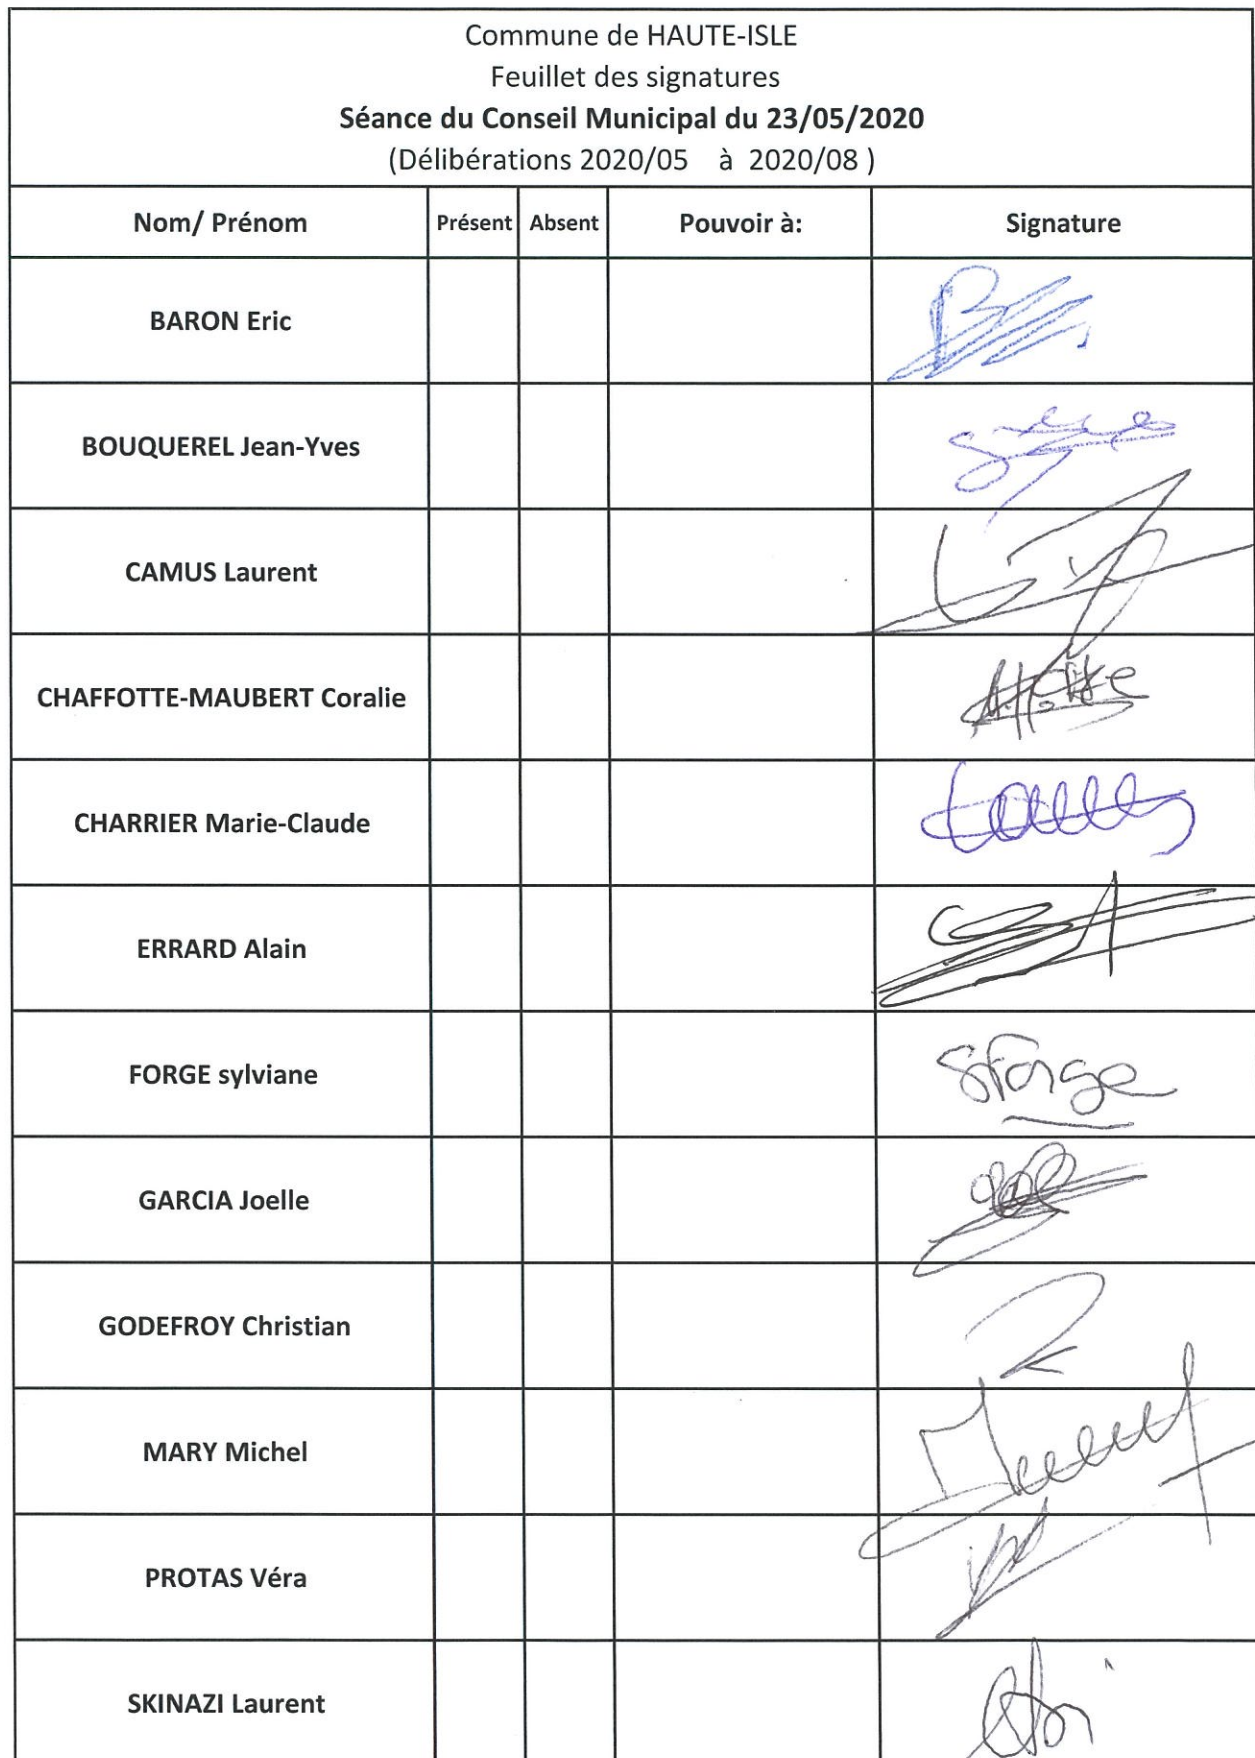 Commune de HAUTE-ISLE
Feuillet des signatures
Séance du Conseil Municipal du 23/05/2020
(Délibérations 2020/05 à 2020/08 )
Nom/ Prénom Présent Absent Pouvoir à: Signature
BARON Eric
BOUQUEREL Jean-Yves
CAMUS Laurent
CHAFFOTTE-MAUBERT Coralie
CHARRIER Marie-Claude
ERRARD Alain
FORGE sylviane SForge
GARCIA Joelle
GODEFROY Christian
MARY Michel
PROTAS Véra
SKINAZI Laurent